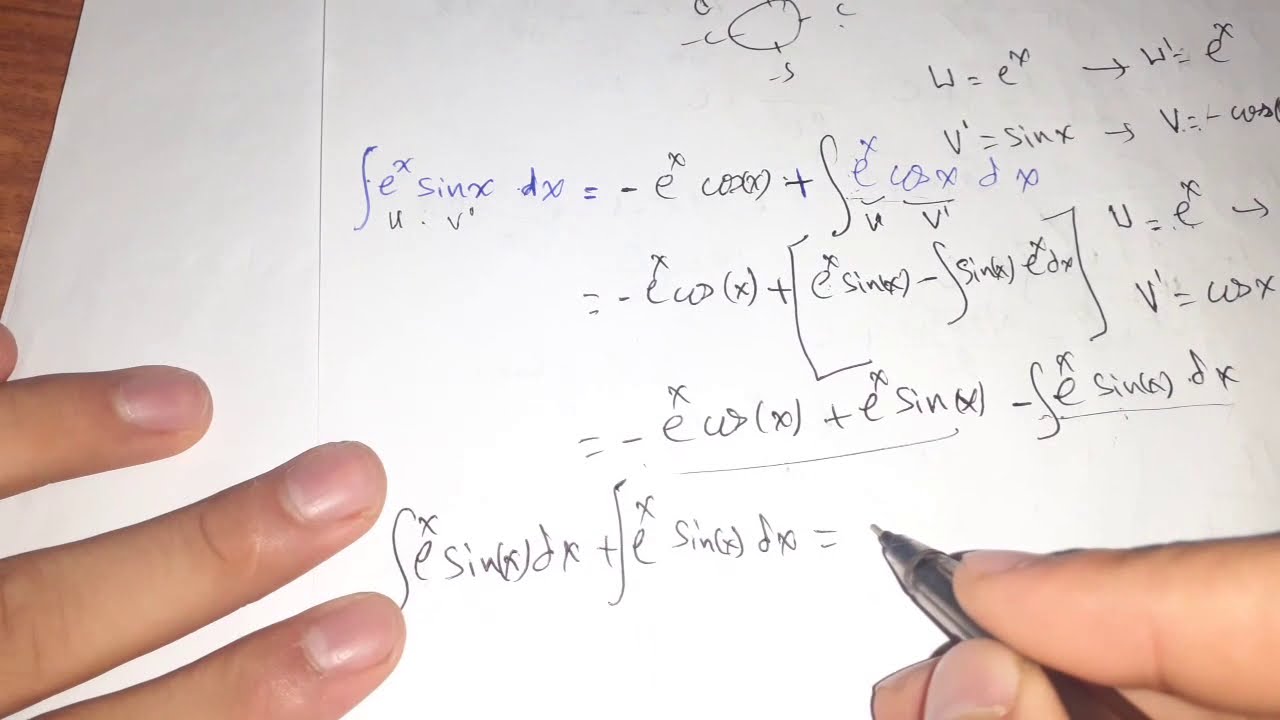 c
-c
-s
u = e^x → u' = e^x
v' = sinx → v = - cos(
∫ e^x sinx dx = - e^x cos(x) + ∫ e^x cosx dx
u . v' u v'
u = e^x →
= - e^x cos(x) + [ e^x sin(x) - ∫ sin(x) e^x dx ]
v' = cosx
= - e^x cos(x) + e^x sin(x) - ∫ e^x sin(x) dx
∫ e^x sin(x) dx + ∫ e^x sin(x) dx =